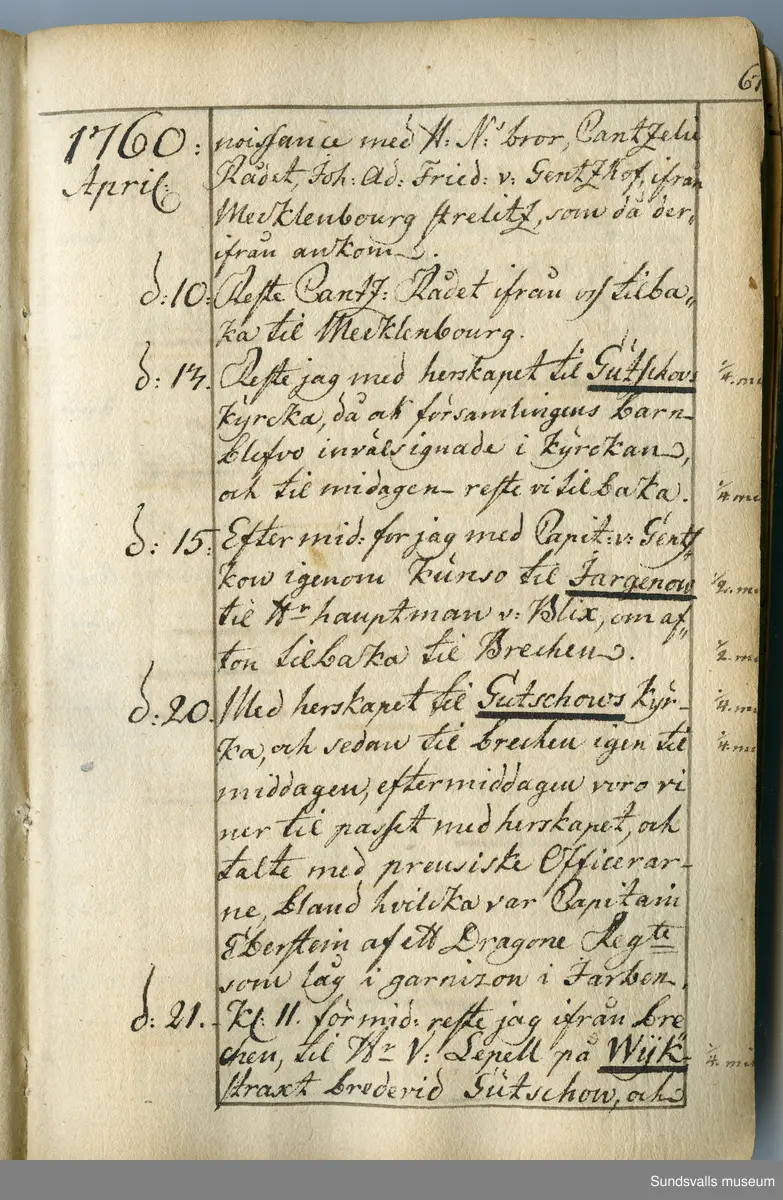 61
1760:
April:
noissance med H: N:s bror, Cantzelie
Rådet, Joh: Ad: Fried: v: Gentzkof, ifrån
Mecklenbourg strelitz, som då der„
ifrån ankom.
d: 10: Reste Cantz: Rådet ifrån oss tilba„
ka til Mecklenbourg.
d: 13. Reste jag med herskapet til Gütschovs 1/4. mi
kyrcka, då ock församlingens barn
blefvo invälsignade i kyrckan,
och til midagen reste vi tilbaka. 1/4 mi
d: 15: Eftermid: for jag med Capit: v: Gentz
kow igenom Kunso til Jargenow 1/2. mi
til Hr hauptman v: Blix, om af„
ton tilbaka til Brechen. 1/2. mi
d: 20. Med herskapet til Gütschows kyr- 1/4. mi
ka, och sedan til brechen igen til 1/4. mi
middagen, eftermiddagen voro vi
ner til passet med herskapet, och
talte med preusiske Officerar-
ne, bland hvilcka var Capitain
Eberstein af ett Dragone Regte
som låg i garnizon i Jarben.
d: 21. Kl: 11. förmid: reste jag ifrån bre
chen, til Hr V: Lepell på Wijk 1/4. mi
straxt brederid Gütschow, och
Sundsvalls museum